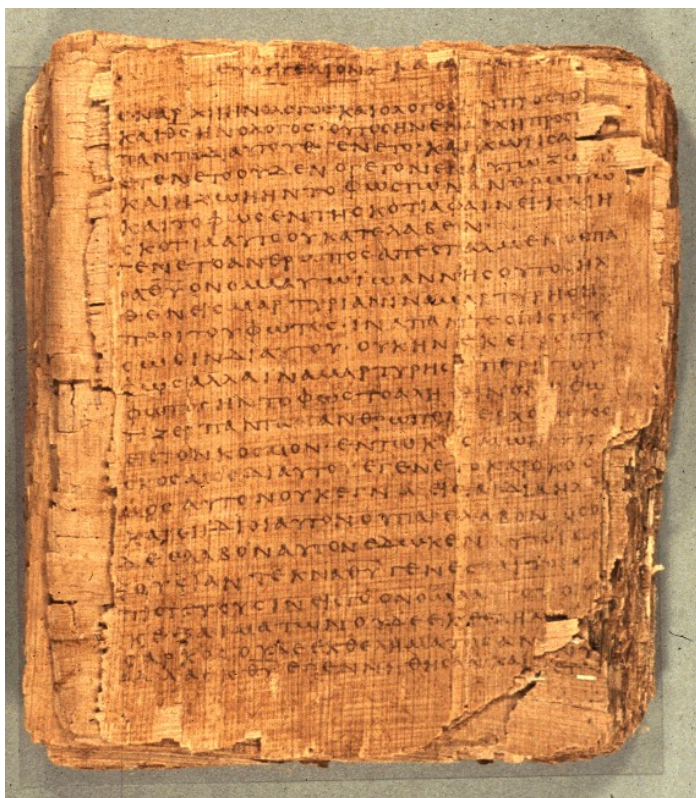 ΕΥΑΓΓΕΛΙΟΝ ΚΑΤΑ
ΕΝΑΡΧΗΗΝΟΛΟΓΟϹΚΑΙΟΛΟΓΟϹΗΝΠΡΟϹΤΟ
ΚΑΙΘϹΗΝΟΛΟΓΟϹ·ΟΥΤΟϹΗΝΕΝΑΡΧΗΠΡΟϹΤ
ΠΑΝΤΑΔΙΑΥΤΟΥΕΓΕΝΕΤΟ·ΚΑΙΧΩΡΙϹΑ
ΕΓΕΝΕΤΟΟΥΔΕΝΟΓΕΓΟΝΕΝΕΝΑΥΤΩΖΩΗ
ΚΑΙΗΖΩΗΗΝΤΟΦΩϹΤΩΝΑΝΘΡΩΠΩ
ΚΑΙΤΟΦΩϹΕΝΤΗϹΚΟΤΙΑΦΑΙΝΕΙ·ΚΑΙΗ
ϹΚΟΤΙΑΑΥΤΟΟΥΚΑΤΕΛΑΒΕΝ·
ΕΓΕΝΕΤΟΑΝΘΡΩΠΟϹΑΠΕϹΤΑΛΜΕΝΟϹΠΑ
ΡΑΘΥΟΝΟΜΑΑΥΤΩΙΩΑΝΝΗϹΟΥΤΟϹΗΛ
ΘΕΝΕΙϹΜΑΡΤΥΡΙΑΝΙΝΑΜΑΡΤΥΡΗϹΗ
ΠΕΡΙΤΟΥΦΩΤΟϹ·ΙΝΑΠΑΝΤΕϹΠΙϹΤΕΥ
ϹΩϹΙΝΔΙΑΥΤΟΥ·ΟΥΚΗΝΕΚΕΙΝΟϹΤΟ
ΦΩϹΑΛΛΑΙΝΑΜΑΡΤΥΡΗϹΗΠΕΡΙΤΟΥ
ΦΩΤΟϹΗΝΤΟΦΩϹΤΟΑΛΗΘΙΝΟΝΟΦΩ
ΤΙΖΕΙΠΑΝΤΑΑΝΘΡΩΠΟΝΕΡΧΟΜΕΝΟΝ
ΕΙϹΤΟΝΚΟϹΜΟΝ·ΕΝΤΩΚΟϹΜΩΗΝΚΑΙ
ΟΚΟϹΜΟϹΔΙΑΥΤΟΥΕΓΕΝΕΤΟΚΑΙΟΚΟϹ
ΜΟϹΑΥΤΟΝΟΥΚΕΓΝΩΕΙϹΤΑΙΔΙΑΗΛΘΕ
ΚΑΙΟΙΙΔΙΟΙΑΥΤΟΝΟΥΠΑΡΕΛΑΒΟΝΟϹΟΙ
ΔΕΕΛΑΒΟΝΑΥΤΟΝΕΔΩΚΕΝΑΥΤΟΙϹΕ
ΞΟΥϹΙΑΝΤΕΚΝΑΘΥΓΕΝΕϹΘΑΙΤΟΙϹ
ΠΙϹΤΕΥΟΥϹΙΝΕΙϹΤΟΟΝΟΜΑ
ΚΕΞΑΙΜΑΤΩΝΟΥΔΕΕΚΘΕΛΗΜΑ
ϹΑΡΚΟϹΟΥΔΕΕΚΘΕΛΗΜΑΤΟϹΑΝ
ΑΛΛΑΕΚΘΥΕΓΕΝΝΗΘΗϹΑΝ ΚΑΙ